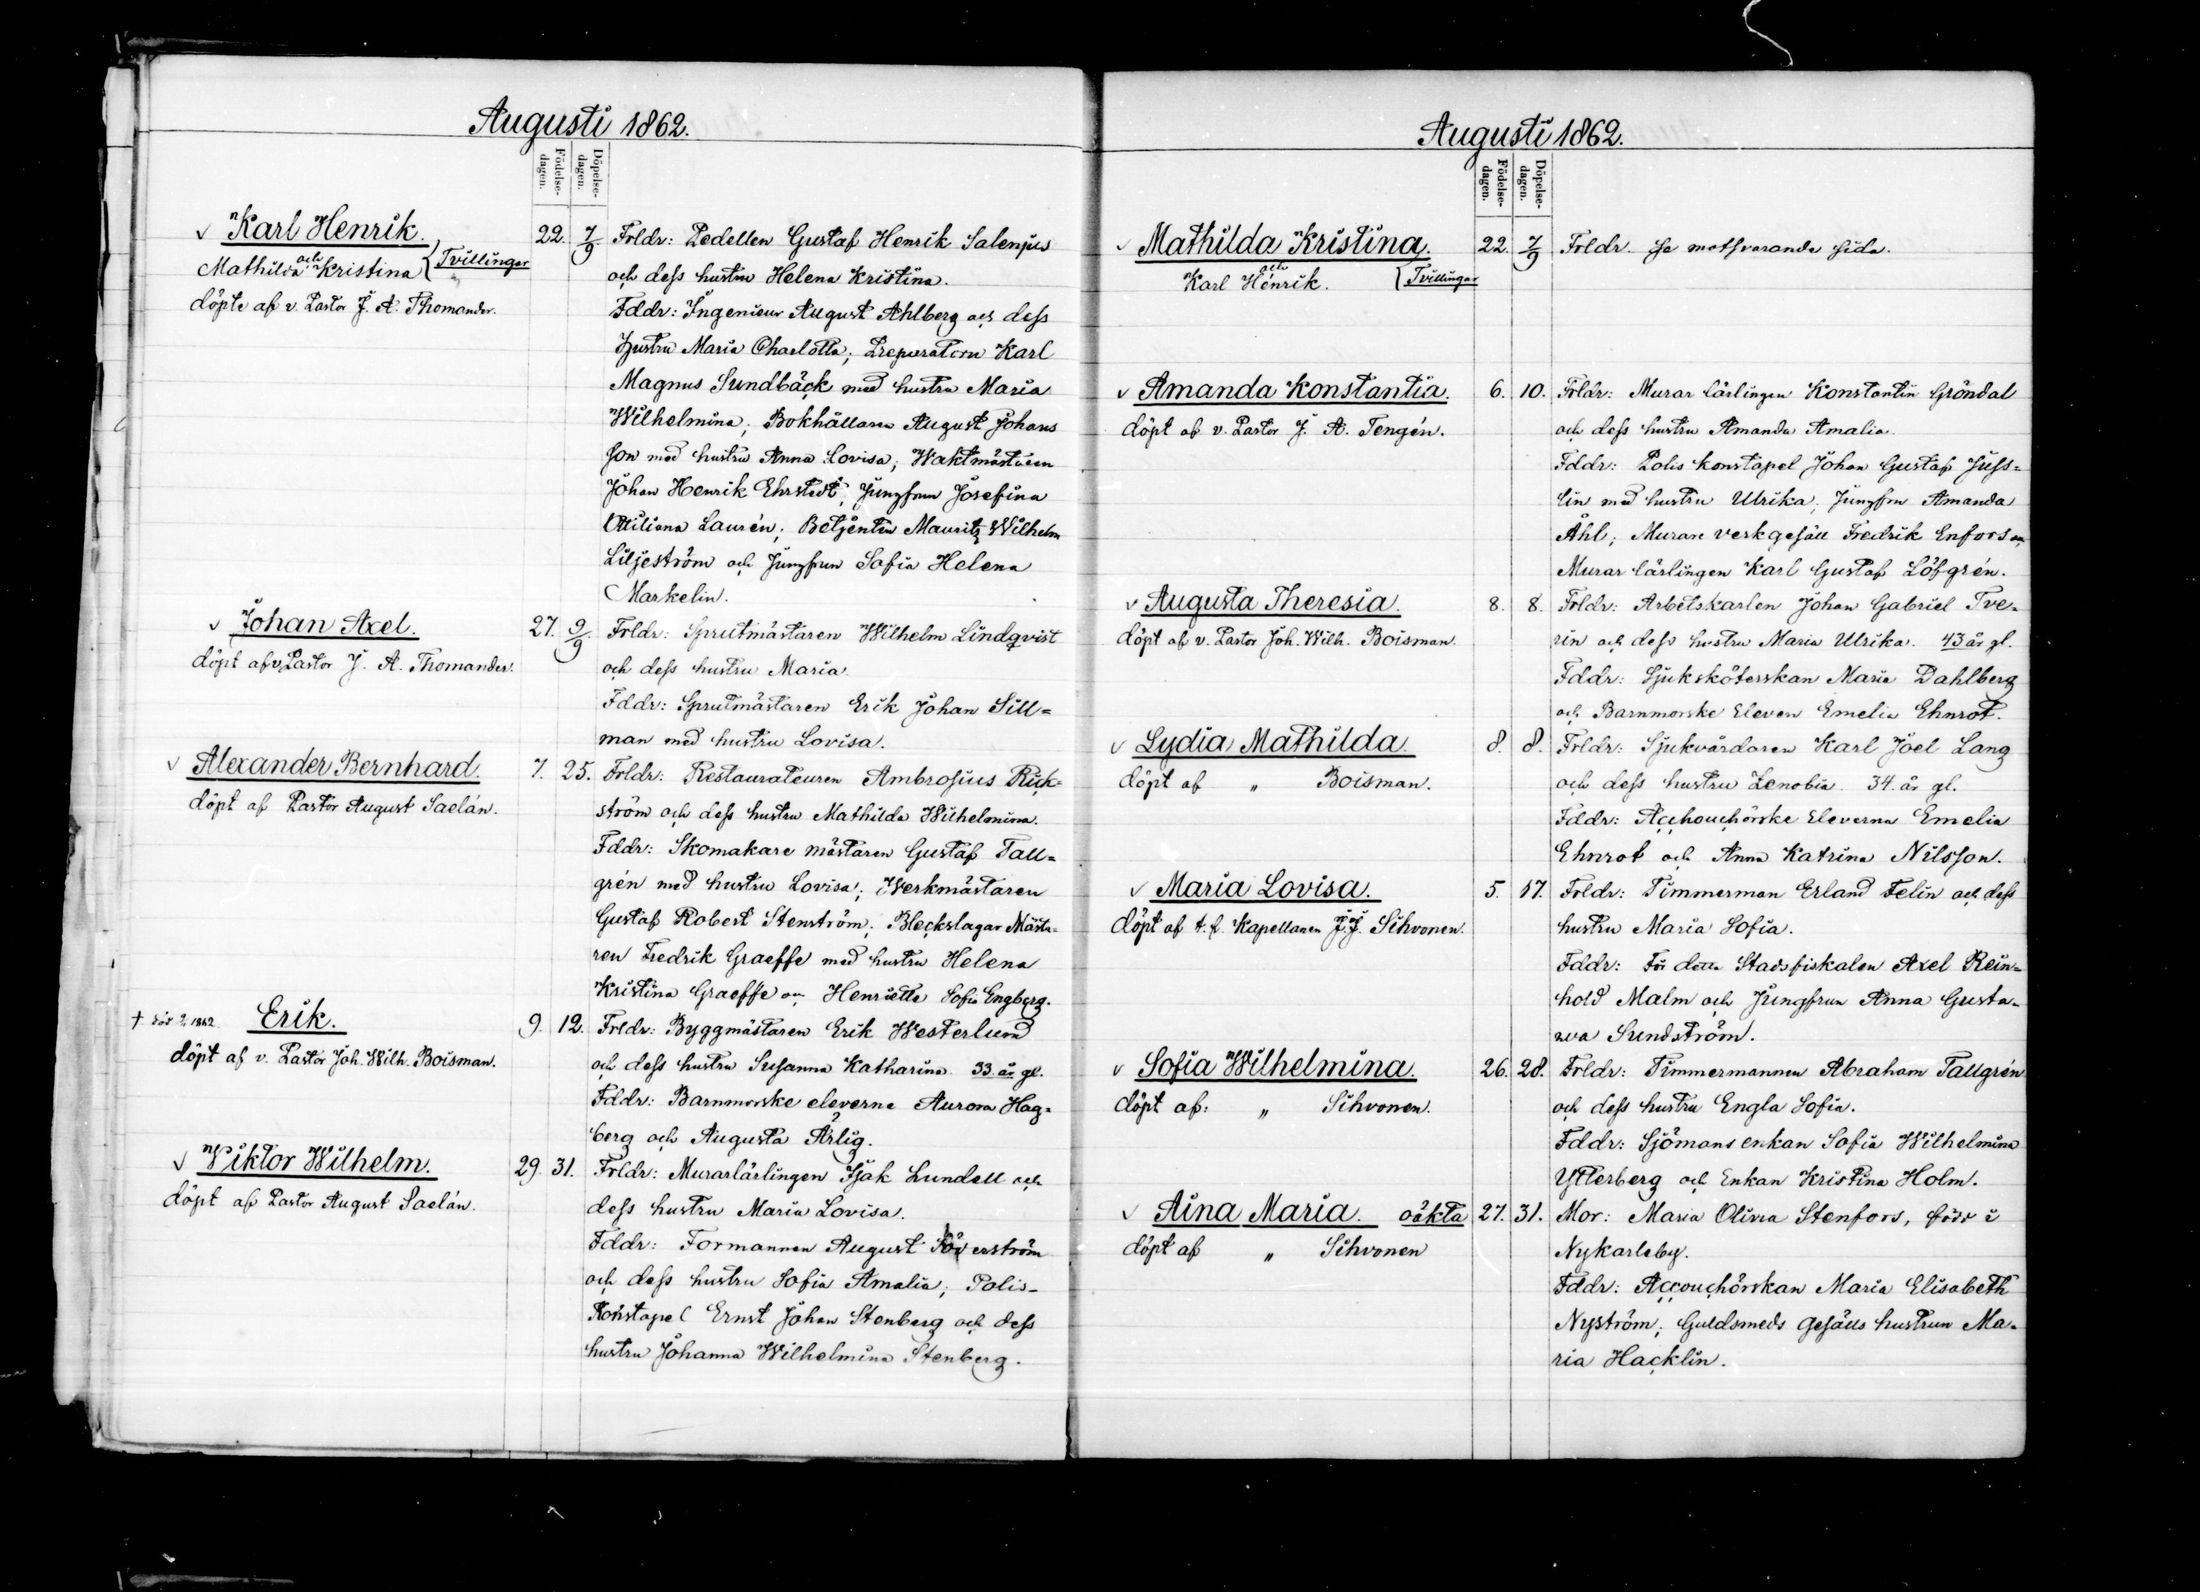 Augusti 1862.
Födelse-dagen.
Döpelse-dagen.
Karl Henrik.
och
Mathilda Kristina } Tvillingar
döpte af v. Pastor J. A. Thomander.
22. 7/9 Frldr: Pedellen Gustaf Henrik Salenjus
och dess hustru Helena Kristina.
Fddr: Ingenieur August Ahlberg och dess
hustru Maria Charlotta; Preparatorn Karl
Magnus Sundbäck med hustru Maria
Wilhelmina; Bokhållaren August Johans
son med hustru Anna Lovisa; Waktmästaren
Johan Henrik Ehrstedt; Jungfrun Josefina
Ottiliana Laurén; Betjenten Mauritz Wilhelm
Liljeström och Jungfrun Sofia Helena
Markelin.
Johan Axel.
döpt af v. Pastor J. A. Thomander.
27. 9/9 Frldr: Sprutmästaren Wilhelm Lindqvist
och dess hustru Maria
Fddr: Sprutmästaren Erik Johan Sill=
man med hustru Lovisa.
Alexander Bernhard.
döpt af Pastor August Saelán.
7. 25. Frldr: Restaurateuren Ambrosius Rük=
ström och dess hustru Mathilda Wilhelmina.
Fddr: Skomakare mästaren Gustaf Tall=
grén med hustru Lovisa; Werkmästaren
Gustaf Robert Stenström; Bleckslagar Mästa=
ren Fredrik Graeffe med hustru Helena
Kristina Graeffe och Henriette Sofia Engberg.
† död 1862 Erik.
döpt af v. Pastor Joh. Wilh. Boisman.
9. 12. Frldr: Byggmästaren Erik Westerlund
och dess hustru Susanna Katharina 33 år gl.
Fddr: Barnmorske eleverne Aurora Hag=
berg och Augusta Ärlig.
Viktor Wilhelm.
döpt af Pastor August Saelán.
29. 31. Frldr: Murarlärlingen Isak Lundell och
dess hustru Maria Lovisa.
Fddr: Formannen August Söderström
och dess hustru Sofia Amalia; Polis-
Konstapel Ernst Johan Stenberg och dess
hustru Johanna Wilhelmina Stenberg.
Augusti 1862.
Födelse-dagen.
Döpelse-dagen.
Mathilda Kristina.
och
Karl Henrik. { Tvillingar
22. 7/9 Frldr. se motsvarande sida.
Amanda Konstantia.
döpt af v. Pastor J. A. Tengén.
6. 10. Frldr: Murar lärlingen Konstantin Gröndal
och dess hustru Amanda Amalia.
Fddr: Polis konstapel Johan Gustaf Juss=
lin med hustru Ulrika; Jungfru Amanda
Åhl; Murare verkgesäll Fredrik Enfors och
Murar lärlingen Karl Gustaf Löfgrén.
Augusta Theresia.
döpt af v. Pastor Joh. Wilh. Boisman.
8. 8. Frldr: Arbetskarlen Johan Gabriel Tve-
rin och dess hustru Maria Ulrika. 43 år gl.
Fddr: Sjuksköterskan Maria Dahlberg
och Barnmorske Eleven Emelia Ehnrot.
Lydia Mathilda.
döpt af „ Boisman.
8. 8. Frldr: Sjukvårdaren Karl Joel Lang
och dess hustru Zenobia. 34 år gl.
Fddr: Acchouchörske Eleverna Emelia
Ehnrot och Anna Katrina Nilsson.
Maria Lovisa.
döpt af t. f. Kapellanen J. J. Sihvonen.
5. 17. Frldr: Timmerman Erland Felin och dess
hustru Maria Sofia.
Fddr: För detta Stadsfiskalen Axel Rein=
hold Malm och Jungfrun Anna Gusta-
wa Sundström.
Sofia Wilhelmina.
döpt af: „ Sihvonen.
26. 28. Frldr: Timmermannen Abraham Tallgrén
och dess hustru Engla Sofia.
Fddr: Sjömans enkan Sofia Wilhelmina
Ytterberg och Enkan Kristina Holm.
Aina Maria. oäkta
döpt af „ Sihvonen
27. 31. Mor: Maria Olivia Stenfors, född i
Nykarleby.
Fddr: Accouchörskan Maria Elisabeth
Nyström; Guldsmeds Gesälls hustrun Ma-
ria Hacklin.